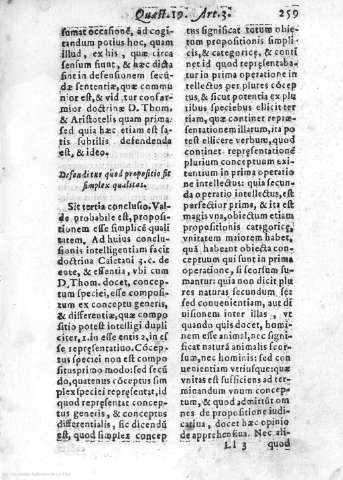 Quæst. 19. Art. 3. 259
sumat occasionē, ad cogi
tandum potius hoc, quam
illud, ex his, quæ circa
sensum sunt, & hæc dicta
sint in defensionem secū-
dæ sententiæ, quæ commu
nior est, & vid tur confor-
mior doctrinæ D. Thom.
& Aristotelis quam prima
sed quia hæc etiam est sa-
tis subtilis defendenda
est, & ideo.
Defenditur quod propositio sit
simplex qualitas.
Sit tertia conclusio. Val-
de probabile est, proposi-
tionem esse simplicē quali
tatem. Ad huius conclu-
sionis intelligentiam facit
doctrina Caietani 4. c. de
ente, & essentia, vbi cum
D. Thom. docet, concep-
tum speciei, esse composi-
tum ex conceptu generis,
& differentiæ, quæ compo
sitio potest intelligi dupli
citer, 1. in esse entis 2, in es
se repræsentatiuo. Cōcep-
tus speciei non est compo
situs primo modo: sed secū
do, quatenus cōceptus sim
plex speciei repræsentat, id
quod repræsentat concep-
tus generis, & conceptus
differentialis, sic dicendū
est, quod simplex concep
tus significat totum obie-
ctum propositionis simpli
cis, & categoricæ, & conti
net id quod repræsentaba-
tur in prima operatione in
tellectus per plures cōcep
tus, & sicut potentia ex plu
ribus speciebus ellicit ter
tiam, quæ continet repræ-
sentationem illarum, ita po
test ellicere verbum, quod
continet repræsentationē
plurium conceptuum exi-
tentium in prima operatio
ne intellectus: quia secun-
da operatio intellectus, est
perfectior prima, & ita est
magis vna, obiectum etiam
propositionis categoricæ,
vnitatem maiorem habet,
quā habeant obiecta con-
ceptuum qui sunt in prima
operatione, si seorsum su-
mantur: quia non dicit plu
res naturas secundum se:
sed conuenientiam, aut di
uisionem inter illas, vt
quando quis docet, homi-
nem esse animal, nec signi-
ficat naturā animalis seor-
sum, nec hominis: sed con
uenientiam vtriusque: quæ
vnitas est sufficiens ad ter-
minandum vnum concep-
tum, & quod admittūt om
nes de propositione iudi-
catiua, docet hæc opinio
de apprehensiua. Nec ali-
Ll 3 quod